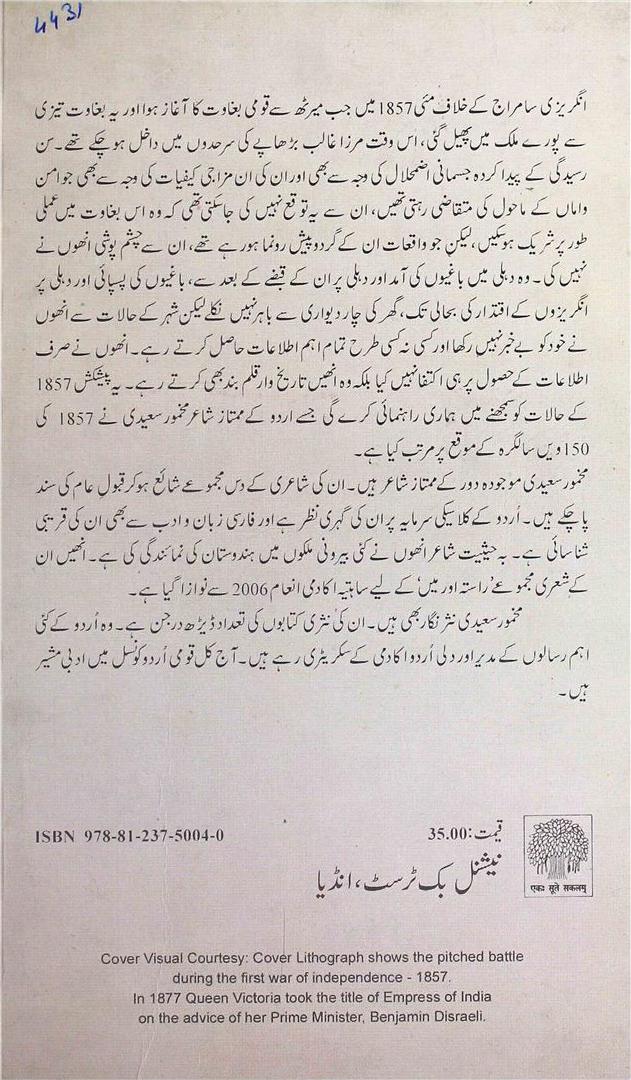 4431
انگریزی سامراج کے خلاف مئی 1857 میں جب میرٹھ سے قومی بغاوت کا آغاز ہوا اور یہ بغاوت تیزی
سے پورے ملک میں پھیل گئی، اس وقت مرزا غالب بڑھاپے کی سرحدوں میں داخل ہو چکے تھے۔ سن
رسیدگی کے پیدا کردہ جسمانی اضمحلال کی وجہ سے بھی اور ان کی ان مزاجی کیفیات کی وجہ سے بھی جو امن
واماں کے ماحول کی متقاضی رہتی تھیں، ان سے یہ توقع نہیں کی جاسکتی تھی کہ وہ اس بغاوت میں عملی
طور پر شریک ہو سکیں، لیکن جو واقعات ان کے گردوپیش رونما ہورہے تھے، ان سے چشم پوشی انھوں نے
نہیں کی۔ وہ دہلی میں باغیوں کی آمد اور دہلی پر ان کے قبضے کے بعد سے، باغیوں کی پسپائی اور دہلی پر
انگریزوں کے اقتدار کی بحالی تک، گھر کی چار دیواری سے باہر نہیں نکلے لیکن شہر کے حالات سے انھوں
نے خود کو بے خبر نہیں رکھا اور کسی نہ کسی طرح تمام اہم اطلاعات حاصل کرتے رہے۔ انھوں نے صرف
اطلاعات کے حصول پر ہی اکتفا نہیں کیا بلکہ وہ انھیں تاریخ وار قلم بند بھی کرتے رہے۔ یہ پیشکش 1857
کے حالات کو سمجھنے میں ہماری راہنمائی کرے گی جسے اردو کے ممتاز شاعر مخمور سعیدی نے 1857 کی
150 ویں سالگرہ کے موقع پر مرتب کیا ہے۔
مخمور سعیدی موجودہ دور کے ممتاز شاعر ہیں۔ ان کی شاعری کے دس مجموعے شائع ہو کر قبول عام کی سند
پا چکے ہیں۔ اُردو کے کلاسیکی سرمایہ پر ان کی گہری نظر ہے اور فارسی زبان و ادب سے بھی ان کی قریبی
شناسائی ہے۔ بہ حیثیت شاعر انھوں نے کئی بیرونی ملکوں میں ہندوستان کی نمائندگی کی ہے۔ انھیں ان
کے شعری مجموعے ’راستہ اور میں‘ کے لیے ساہتیہ اکادمی انعام 2006 سے نوازا گیا ہے۔
مخمور سعیدی نثر نگار بھی ہیں۔ ان کی نثری کتابوں کی تعداد ڈیڑھ درجن ہے۔ وہ اُردو کے کئی
اہم رسالوں کے مدیر اور دلی اُردو اکادمی کے سکریٹری رہے ہیں۔ آج کل قومی اُردو کونسل میں ادبی مشیر
ہیں۔
قیمت: 35.00
ISBN 978-81-237-5004-0
نیشنل بک ٹرسٹ، انڈیا
एकः सूते सकलम्
Cover Visual Courtesy: Cover Lithograph shows the pitched battle
during the first war of independence - 1857.
In 1877 Queen Victoria took the title of Empress of India
on the advice of her Prime Minister, Benjamin Disraeli.